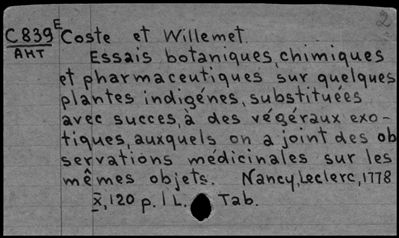 C839E Coste et Willemet.
AHT
Essais botaniques, chimiques
et pharmaceutiques sur quelques
plantes indigénes, substituées
avec succes, à des végéraux exo-
tiques, auxquels on a joint des ob
servations médicinales sur les
mêmes objets. Nancy, Leclerc, 1778
x, 120 p. 1 L. Tab.
2